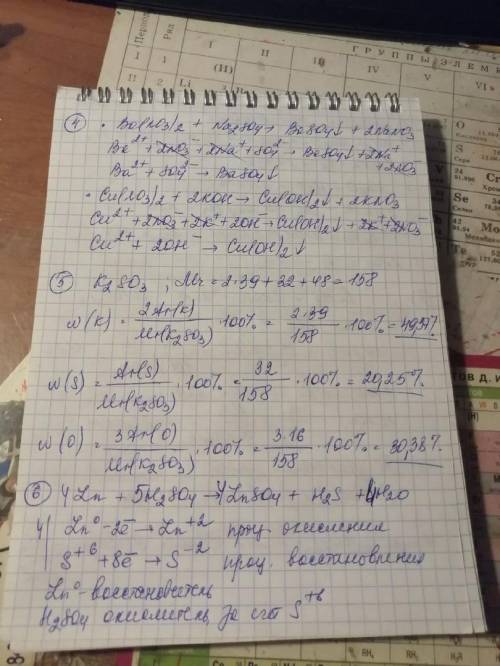 Период
Ряд
I
II
III
IV
V
VI
ГРУППЫ ЭЛЕМ
1
1
(H)
2
Li
④ • Ba(NO3)2 + Na2SO4 → BaSO4↓ + 2NaNO3
Ba²⁺ + 2NO3⁻ + 2Na⁺ + SO4²⁻ → BaSO4↓ + 2Na⁺
+ 2NO3⁻
Ba²⁺ + SO4²⁻ → BaSO4↓
• Cu(NO3)2 + 2KOH → Cu(OH)2↓ + 2KNO3
Cu²⁺ + 2NO3⁻ + 2K⁺ + 2OH⁻ → Cu(OH)2↓ + 2K⁺ + 2NO3⁻
Cu²⁺ + 2OH⁻ → Cu(OH)2↓
⑤ K2SO3 , Mr = 2·39 + 32 + 48 = 158
w(K) = 2Ar(K) / Mr(K2SO3) · 100% = 2·39 / 158 · 100% = 49,37%
w(S) = Ar(S) / Mr(K2SO3) · 100% = 32 / 158 · 100% = 20,25%
w(O) = 3Ar(O) / Mr(K2SO3) · 100% = 3·16 / 158 · 100% = 30,38%
⑥ 4Zn + 5H2SO4 → 4ZnSO4 + H2S + 4H2O
4 | Zn⁰ - 2e̅ → Zn⁺² проц. окисления
S⁺⁶ + 8e̅ → S⁻² проц. восстановления
Zn⁰ - восстановитель
H2SO4 окислитель за счёт S⁺⁶
O
S
Se
Mo